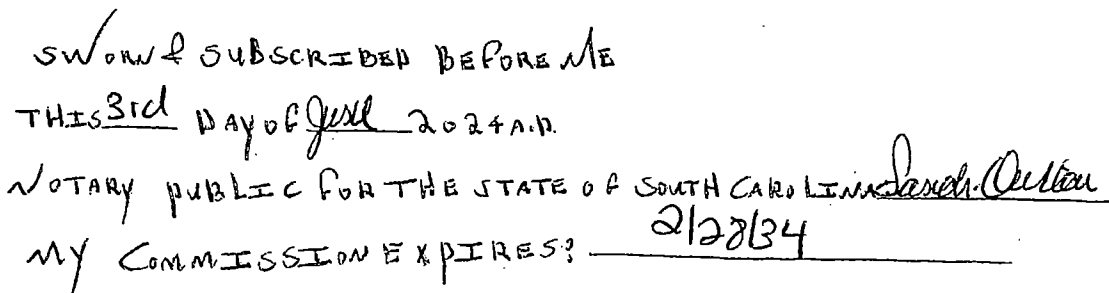 SWORN & SUBSCRIBED BEFORE ME
THIS 3rd DAY OF June 2024 A.D.
NOTARY PUBLIC FOR THE STATE OF SOUTH CAROLINA
MY COMMISSION EXPIRES: 2/28/34